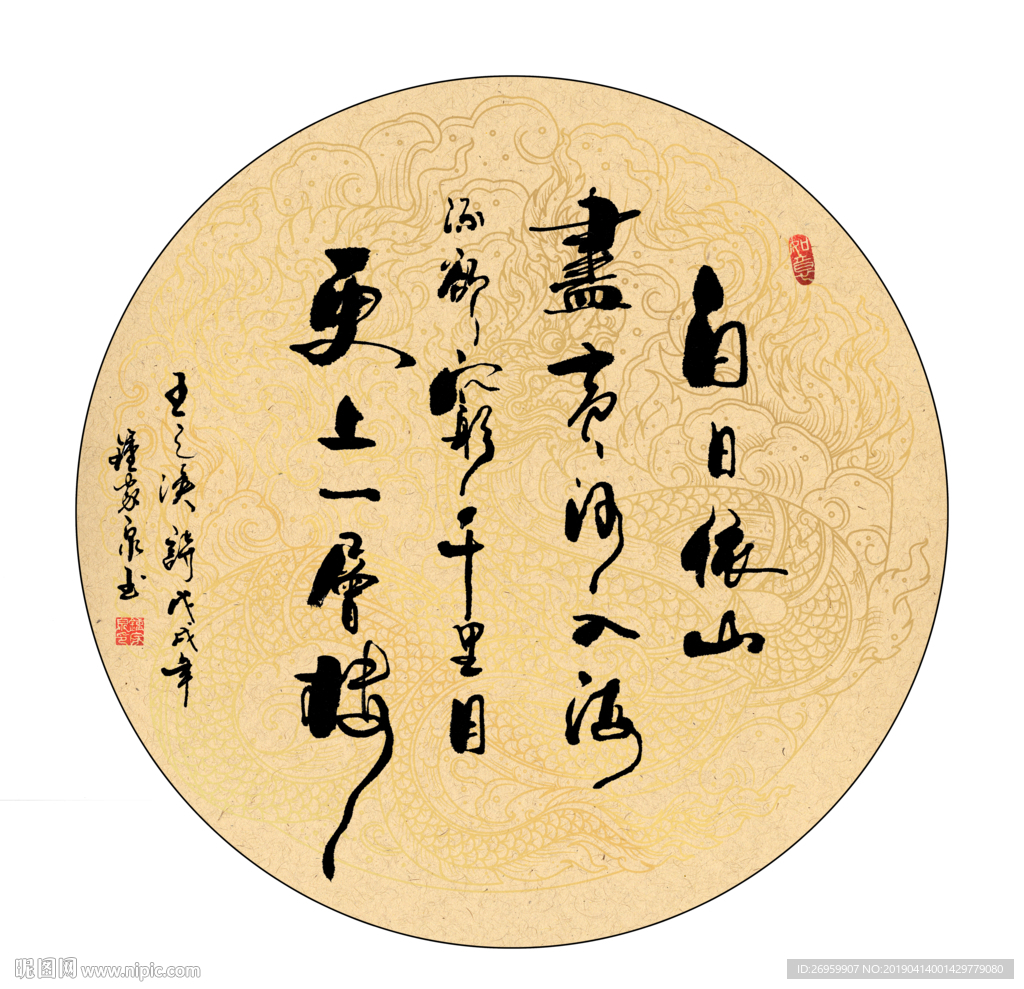 白日依山
盡黃河入海
流欲窮千里目
更上一層樓
王之渙詩戊戌年
鍾家泉书
如意
昵图网 www.nipic.com
ID:26959907 NO:20190414001429779080